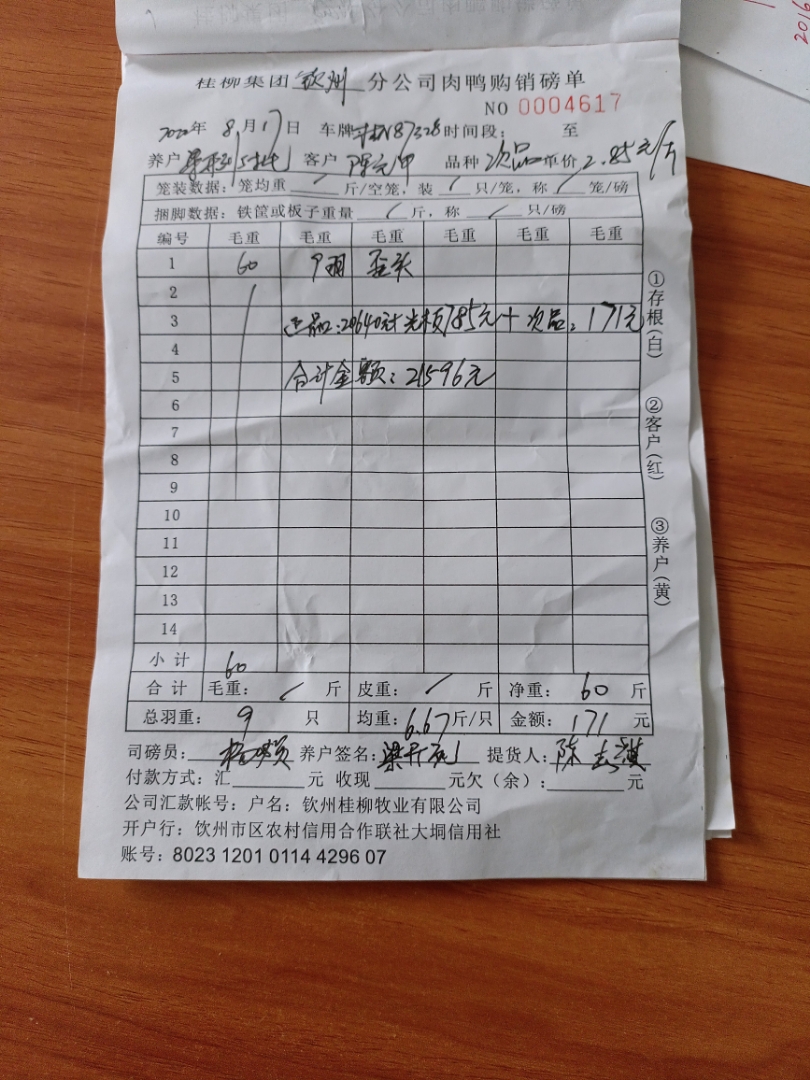 桂柳集团 钦州 分公司肉鸭购销磅单
NO 0004617
2022年 8月17日 车牌 87328 时间段: 至
养户 客户 陈元 品种 次品 单价 2.85元/斤
笼装数据: 笼均重 / 斤/空笼, 装 / 只/笼, 称 / 笼/磅
捆脚数据: 铁筐或板子重量 / 斤, 称 / 只/磅
编号 毛重 毛重 毛重 毛重 毛重 毛重
1 60 9羽 歪头
2
3 正品:20640元+ 785元+次品:171元
4
5 合计金额:21596元
6
7
8
9
10
11
12
13
14
小计 60
合计 毛重: / 斤 皮重: / 斤 净重: 60 斤
总羽重: 9 只 均重: 6.67斤/只 金额: 171 元
司磅员: 养户签名: 梁 提货人: 陈
付款方式: 汇 元 收现 元欠(余): 元
公司汇款帐号: 户名: 钦州桂柳牧业有限公司
开户行: 钦州市区农村信用合作联社大垌信用社
账号: 8023 1201 0114 4296 07
①存根(白)
②客户(红)
③养户(黄)
2016